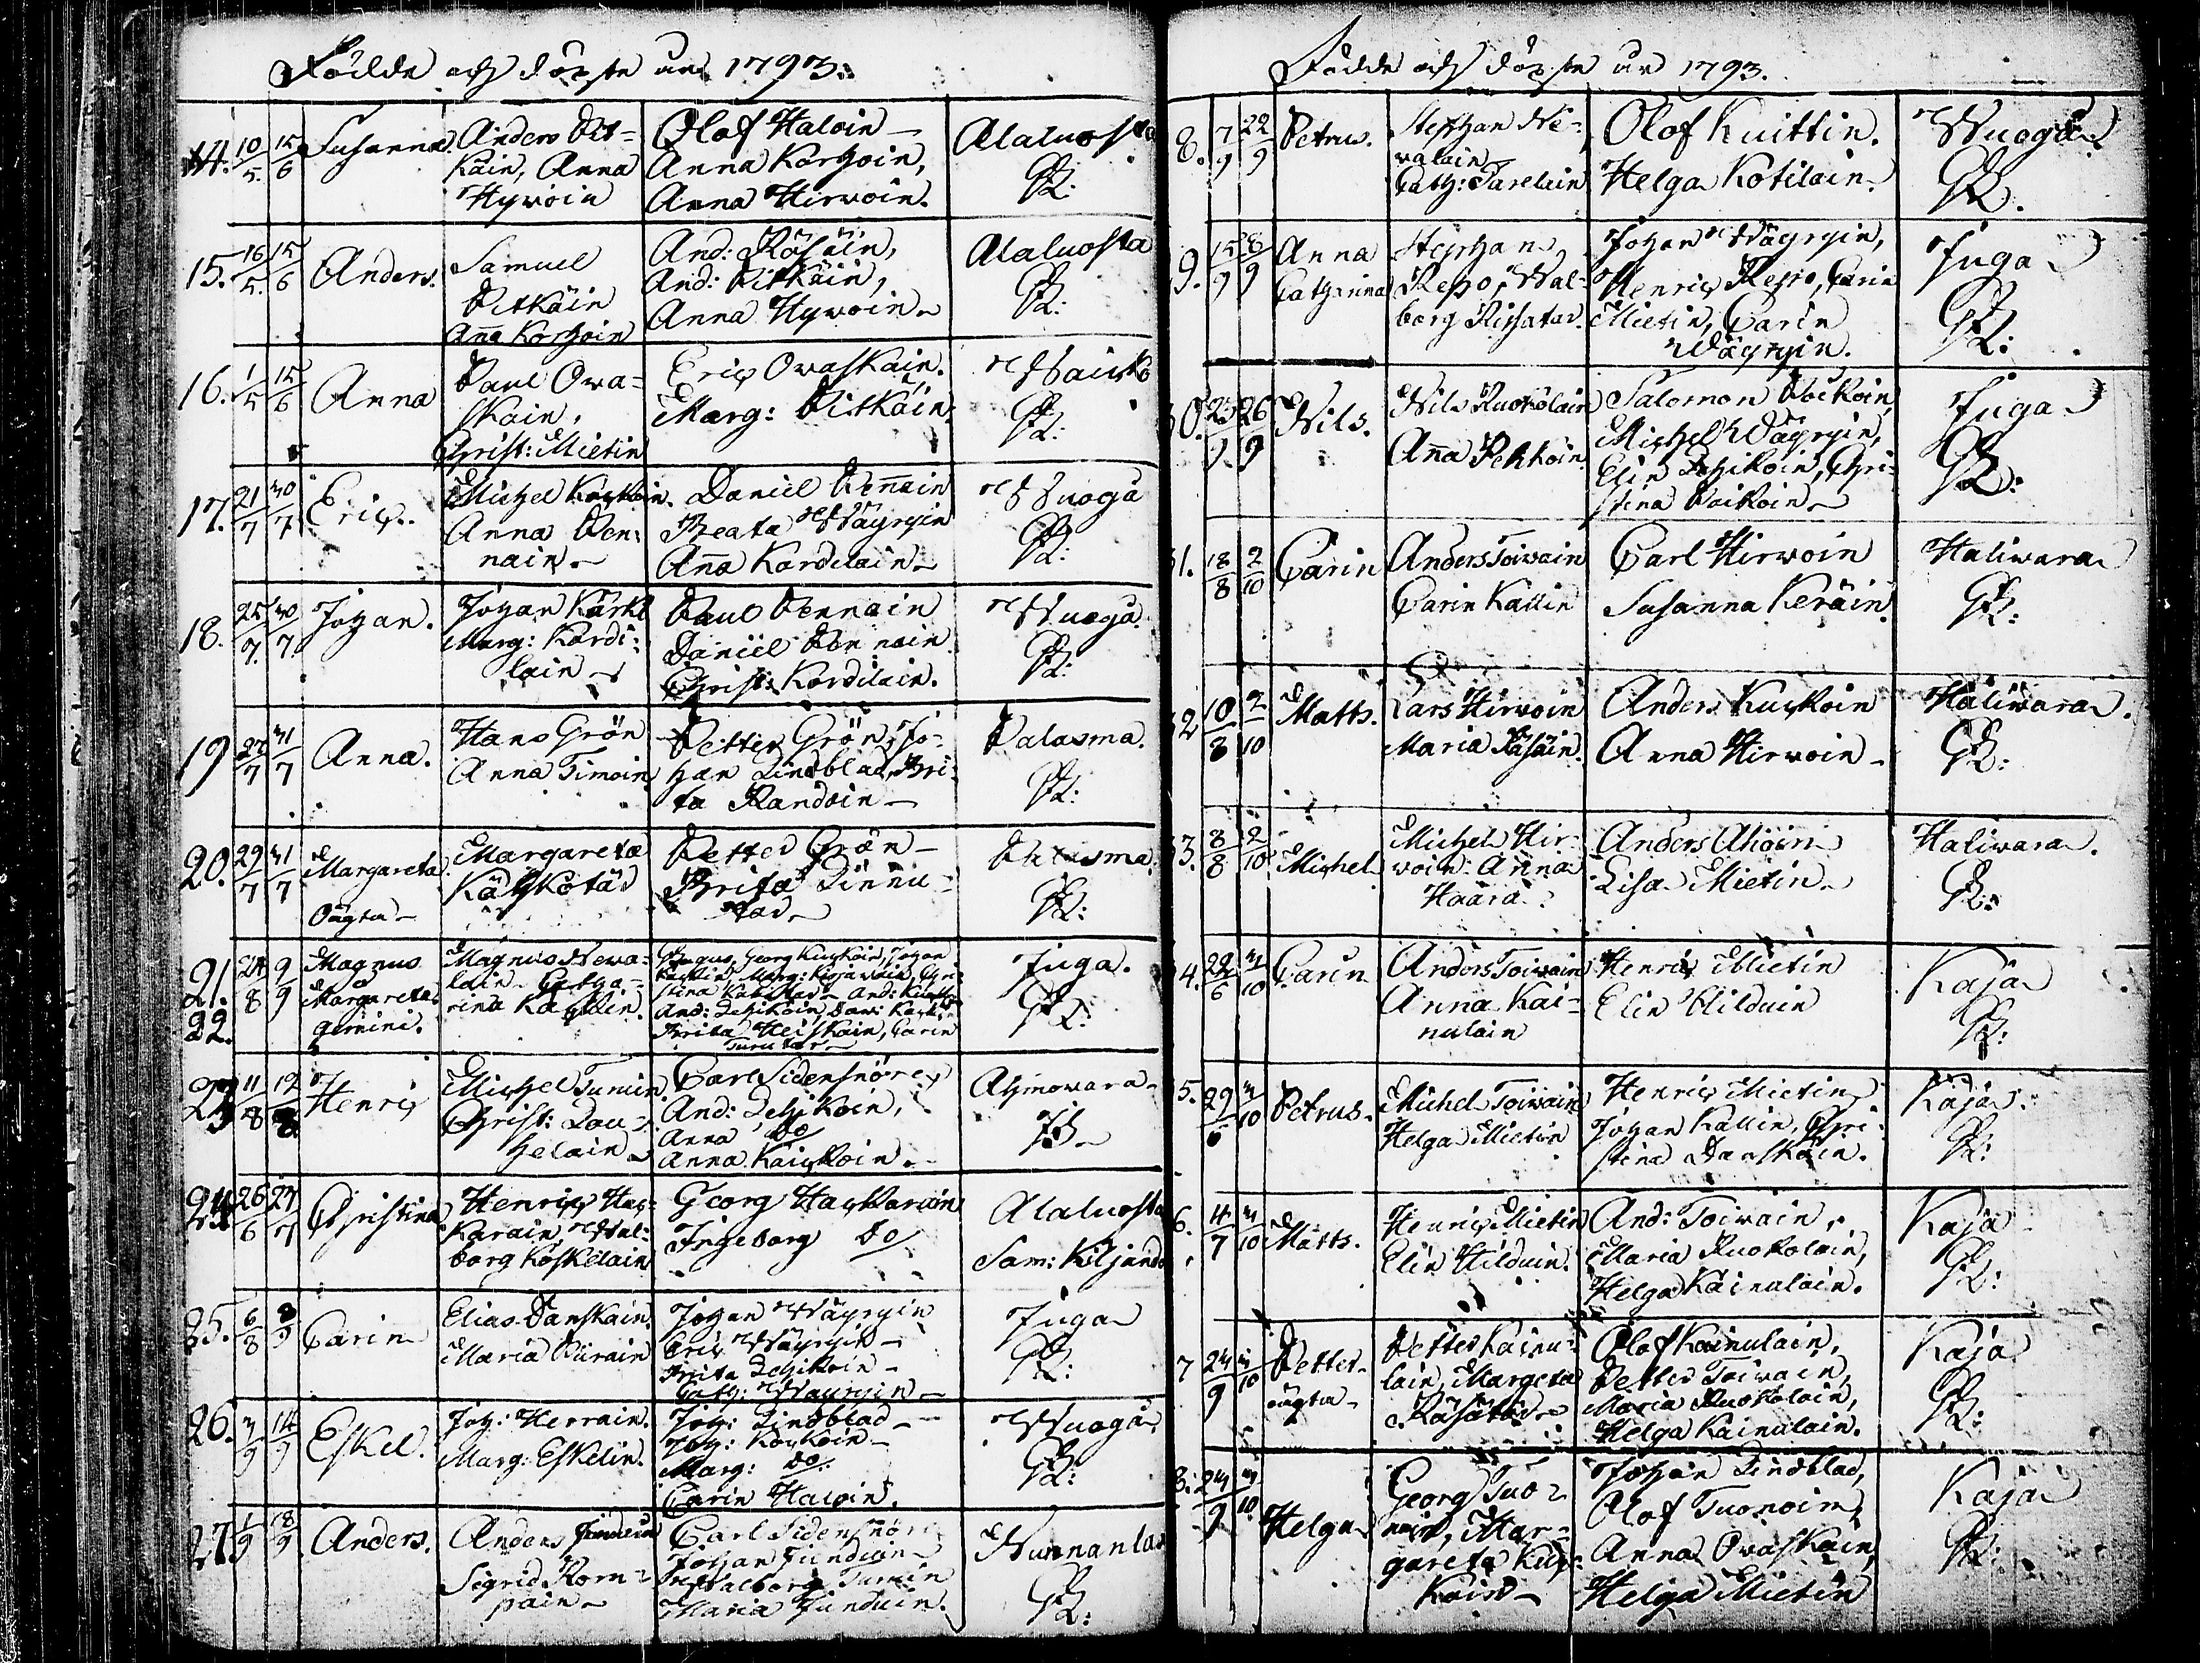 Födde och döpte år 1793.
14. 10/5. 15/6 Susanna Anders Pit-
käin, Anna
Hyvöin
Olof Haloin
Anna Korhoin,
Anna Hirvoin.
Alaluosta
15. 16/5. 15/6 Anders.
Samuel
Pitkäin
Ana Korhoin
And: Räsäin,
And: Pitkäin,
Anna Hyvoin
Alaluosta
16. 1/5 15/6 Anna
Paul Ova-
skain,
Christ: Mietin
Eric Ovaskain.
Marg: Pitkäin.
17. 21/7 30/7 Eric.
Michel
Anna Pen-
nain
Daniel Pennain
Beata Wäyryin
Ana Kordelain
Nuogå
18. 25/7. 30/7. Johan.
Johan Kärki
Marg: Kordi-
lain
Paul Pennain
Daniel Pennain
Christ: Kordilain.
Nuogå.
19 27/7 31/7 Anna.
Hans Grön
Anna Timoin
Petter Grön, Jo-
han Lindblad, Bri-
ta Randoin
Palasma.
20. 29/7 31/7 Margareta
oägta
Margareta
Petter Grön
Brita
Palasma.
21.
22.
24/8 9/9 Magnus
Margareta
gemini.
Magnus Neva-
lain Catha-
rina
Juga.
23 11/8 12/8 Henric
Michel Turuin.
Christ: Lau-
helain
Carl Sidensnöre
And: Lehikoin,
Anna Do
Anna
Ahmovara
24. 26/6 27/7 Christina
Henric Hac-
karain, Wal-
borg Koskelain
Georg Hackarain
Ingeborg Do
Alaluosta
Sam: Kiljander
25. 6/8 8/9 Carin
Elias Danskain.
Maria Piirain
Johan Wäyryin
Eric Wäyryin
Brita Lehikoin
Cath: Wäyryin
Juga
26. 3/9 14/9 Eskel.
Joh: Herrain.
Marg: Eskelin.
Joh: Lindblad
Joh: Kockoin
Marg: Do.
Carin Haloin.
Nuogå
27. 1/9 18/9 Anders.
Anders
Sigrid Korn-
pain
Carl Sidensnöre
Johan
Walborg Turuin
Maria
Nunnanlax
Födde och döpte år 1793.
8. 7/9 22/9 Petrus.
Stephan Ne-
valain
Cath: Tarelain
Olof Kuittin.
Helga Kotilain.
Nuogå
9. 15/9 /9 Anna
Catharina
Stephan
Repo, Wal-
borg Rissatar.
Johan Wäyryin,
Henric Repo, Carin
Mietin, Carin
Wäyryin.
Juga
30. 25/9 26/9 Nils.
Nils Ruokolain
Ana Pekkoin.
Salomon Poikoin,
Michel Wäyryin,
Elin Lehikoin, Chri-
stina Poikoin
Juga
31. 18/8 2/10 Carin
Anders Toivain
Carin Kallin
Carl Hirvoin
Susanna Keräin.
Halivara
32 10/8 2/10 Matts.
Lars Hirvoin
Maria Räsäin.
Anders Kuckoin
Anna Hirvoin
Halivara.
33. 8/8 2/10 Michel
Michel Hir-
voin. Anna
Haara.
Anders Ahoin
Lisa Mietin
Halivara.
34. /6 3/10 Carin
Anders Toivain
Anna Kai-
nulain
Henric Mietin
Elin Hilduin
Kaja
35. 29/6 3/10 Petrus.
Michel Toivain
Helga Mietin
Henric Mietin
Johan Kallin, Chri-
stina Danskain.
Kaja.
36. 4/7 3/10 Matts.
Henric Mietin
Elin Hilduin.
And: Toivain,
Maria Ruokolain,
Helga Kainulain.
Kaja
7 24/9 3/10 Petter
oägta
Petter Kainu-
lain, Margeta
Räsätär
Olof Kainulain,
Petter Toivain,
Maria Ruokolain,
Helga Kainulain.
Kaja
8. 23/9 3/10 Helga
Georg Tuo-
noin, Mar-
gareta Kuc-
koin
Johan Lindblad,
Olof Tuonoin,
Anna Ovaskain,
Helga Mietin
Kaja